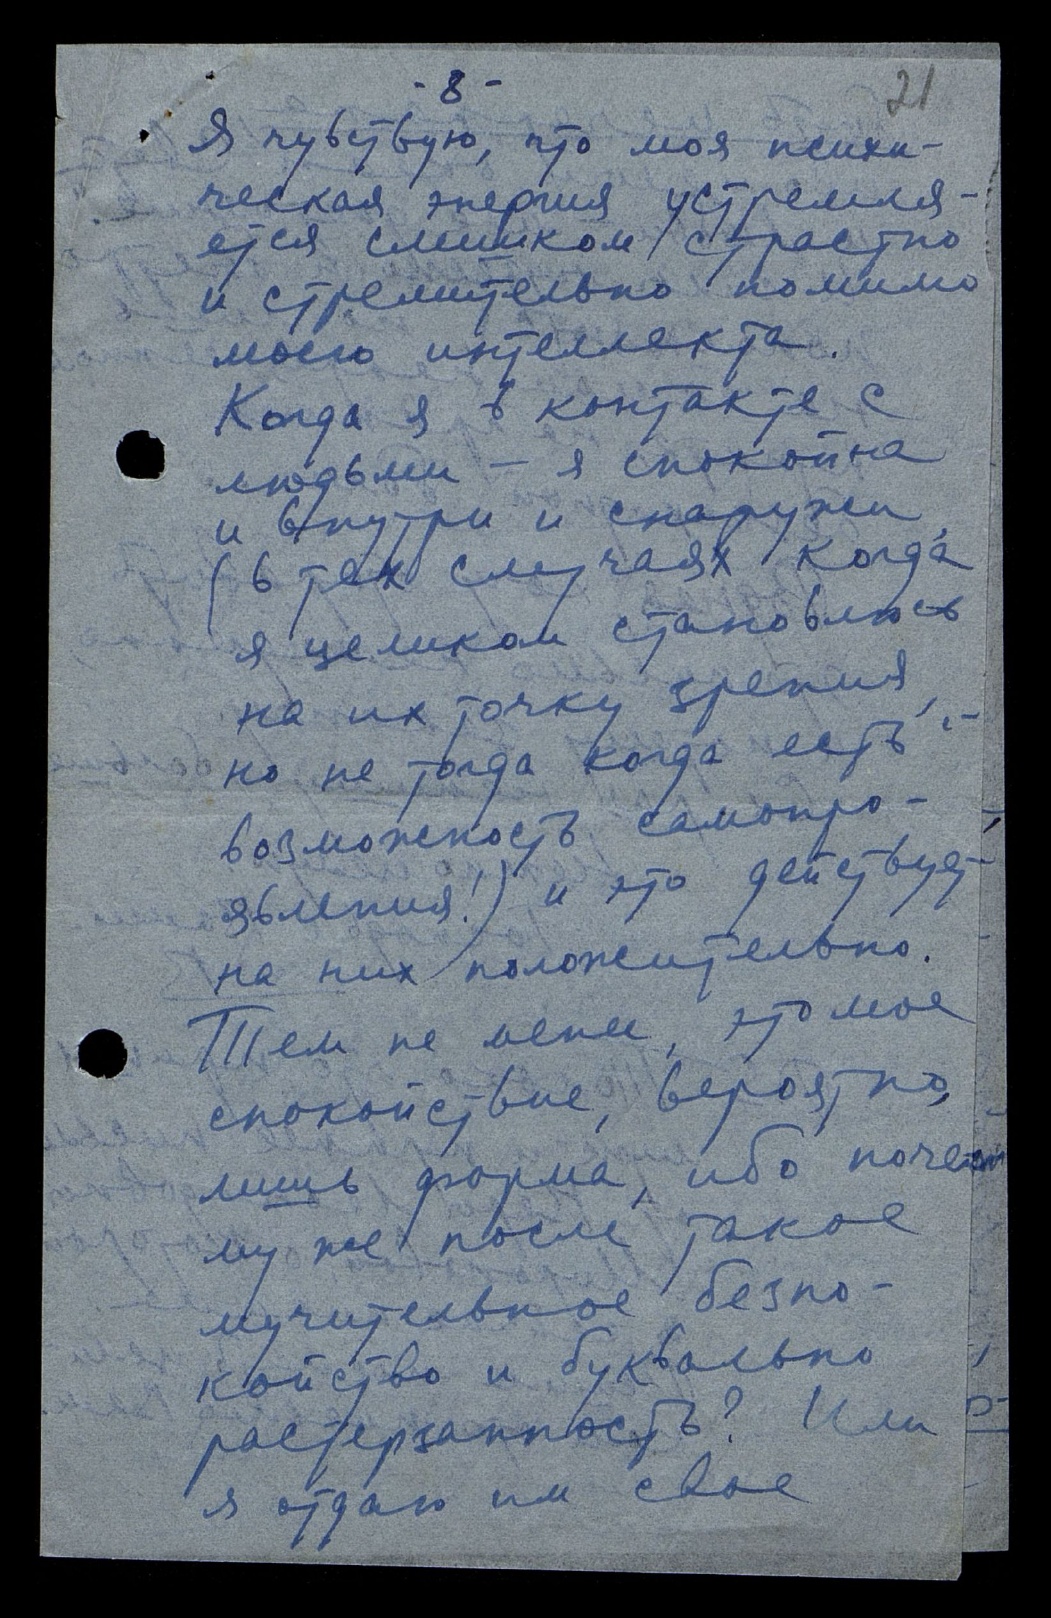 - 8 -
21
Я чувствую, что моя психи-
ческая энергия устремля-
ется слишком страстно
и стремительно помимо
моего интеллекта.
Когда я в контакте с
людьми – я спокойна
и внутри и снаружи,
(в тех случаях когда
я целиком становлюсь
на их точку зрения,
но не тогда когда есть
возможность самопро-
явления!) и это действует
на них положительно.
Тем не менее, это мое
спокойствие, вероятно,
лишь форма, ибо поче-
му же после такое
мучительное безпо-
койство и буквально
растерзанность? Или
я отдаю им свое